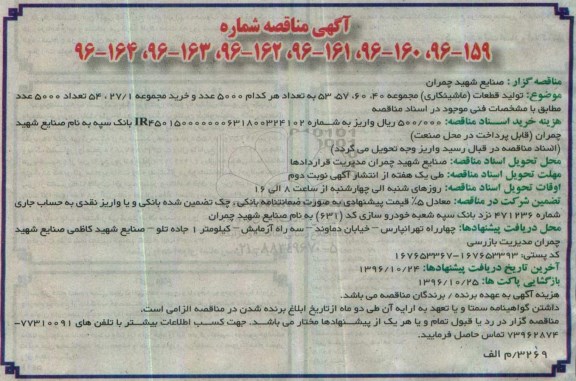 آگهی مناقصه شماره
۹۶-۱۵۹، ۹۶-۱۶۰، ۹۶-۱۶۱، ۹۶-۱۶۲، ۹۶-۱۶۳، ۹۶-۱۶۴
مناقصه گزار : صنایع شهید چمران
موضوع: تولید قطعات (ماشینکاری) مجموعه ۴۰، ۶۰، ۵۷، ۵۳ به تعداد هر کدام ۵۰۰۰ عدد و خرید مجموعه ۲۷/۱ ، ۵۴ تعداد ۵۰۰۰ عدد
مطابق با مشخصات فنی موجود در اسناد مناقصه
هزینه خرید اسناد مناقصه: ۵۰۰/۰۰۰ ریال واریز به شماره IR۴۵۰۱۵۰۰۰۰۰۰۰۶۳۱۸۰۰۳۲۴۱۰۲ بانک سپه به نام صنایع شهید
چمران (قابل پرداخت در محل صنعت)
(اسناد مناقصه در قبال رسید واریز وجه تحویل می گردد)
محل تحویل اسناد مناقصه: صنایع شهید چمران مدیریت قراردادها
مهلت تحویل اسناد مناقصه: طی یک هفته از انتشار آگهی نوبت دوم
اوقات تحویل اسناد مناقصه: روزهای شنبه الی چهارشنبه از ساعت ۸ الی ۱۶
تضمین شرکت در مناقصه: معادل ۵٪ قیمت پیشنهادی به صورت ضمانتنامه بانکی ، چک تضمین شده بانکی و یا واریز نقدی به حساب جاری
شماره ۴۷۱۲۳۶ نزد بانک سپه شعبه خودرو سازی کد (۶۳۱) به نام صنایع شهید چمران
محل دریافت پیشنهادها: چهارراه تهرانپارس – خیابان دماوند – سه راه آزمایش – کیلومتر ۱ جاده تلو – صنایع شهید کاظمی صنایع شهید
چمران مدیریت بازرسی
کد پستی: ۱۶۷۶۵۳۳۹۳-۱۶۷۶۵۳۳۶۷
آخرین تاریخ دریافت پیشنهادها: ۱۳۹۶/۱۰/۲۴
بازگشایی پاکت ها: ۱۳۹۶/۱۰/۲۵
هزینه آگهی به عهده برنده / برندگان مناقصه می باشد.
داشتن گواهینامه سمتا و یا تعهد به ارایه آن طی دو ماه ازتاریخ ابلاغ برنده شدن در مناقصه الزامی است.
مناقصه گزار در رد یا قبول تمام و یا هر یک از پیشنهادها مختار می باشد. جهت کسب اطلاعات بیشتر با تلفن های ۷۷۳۱۰۰۹۱-
۷۳۹۶۲۸۷۴ تماس حاصل فرمایید.
۳۲۶۹/م الف